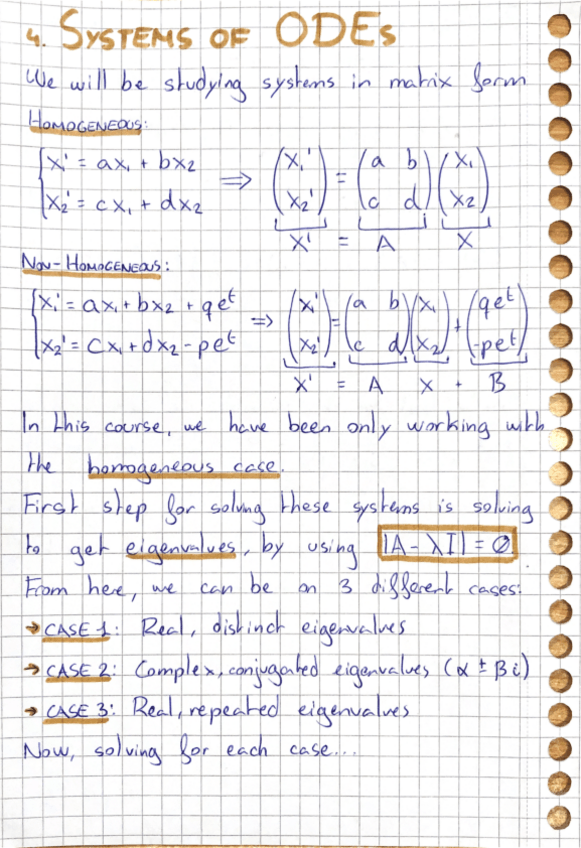 4. SYSTEMS OF ODEs
We will be studying systems in matrix form
HOMOGENEOUS:
{x₁' = ax₁ + bx₂ ⟹ (x₁') = (a b)(x₁)
{x₂' = cx₁ + dx₂ (x₂') (c d)(x₂)
X' = A X
NON-HOMOGENEOUS:
{x₁' = ax₁ + bx₂ + qeᵗ ⟹ (x₁') = (a b)(x₁) + (qeᵗ)
{x₂' = cx₁ + dx₂ - peᵗ (x₂') (c d)(x₂) (-peᵗ)
X' = A X + B
In this course, we have been only working with
the homogeneous case.
First step for solving these systems is solving
to get eigenvalues, by using |A - λI| = 0
From here, we can be on 3 different cases:
→ CASE 1: Real, distinct eigenvalues
→ CASE 2: Complex, conjugated eigenvalues (α ± βi)
→ CASE 3: Real, repeated eigenvalues
Now, solving for each case...